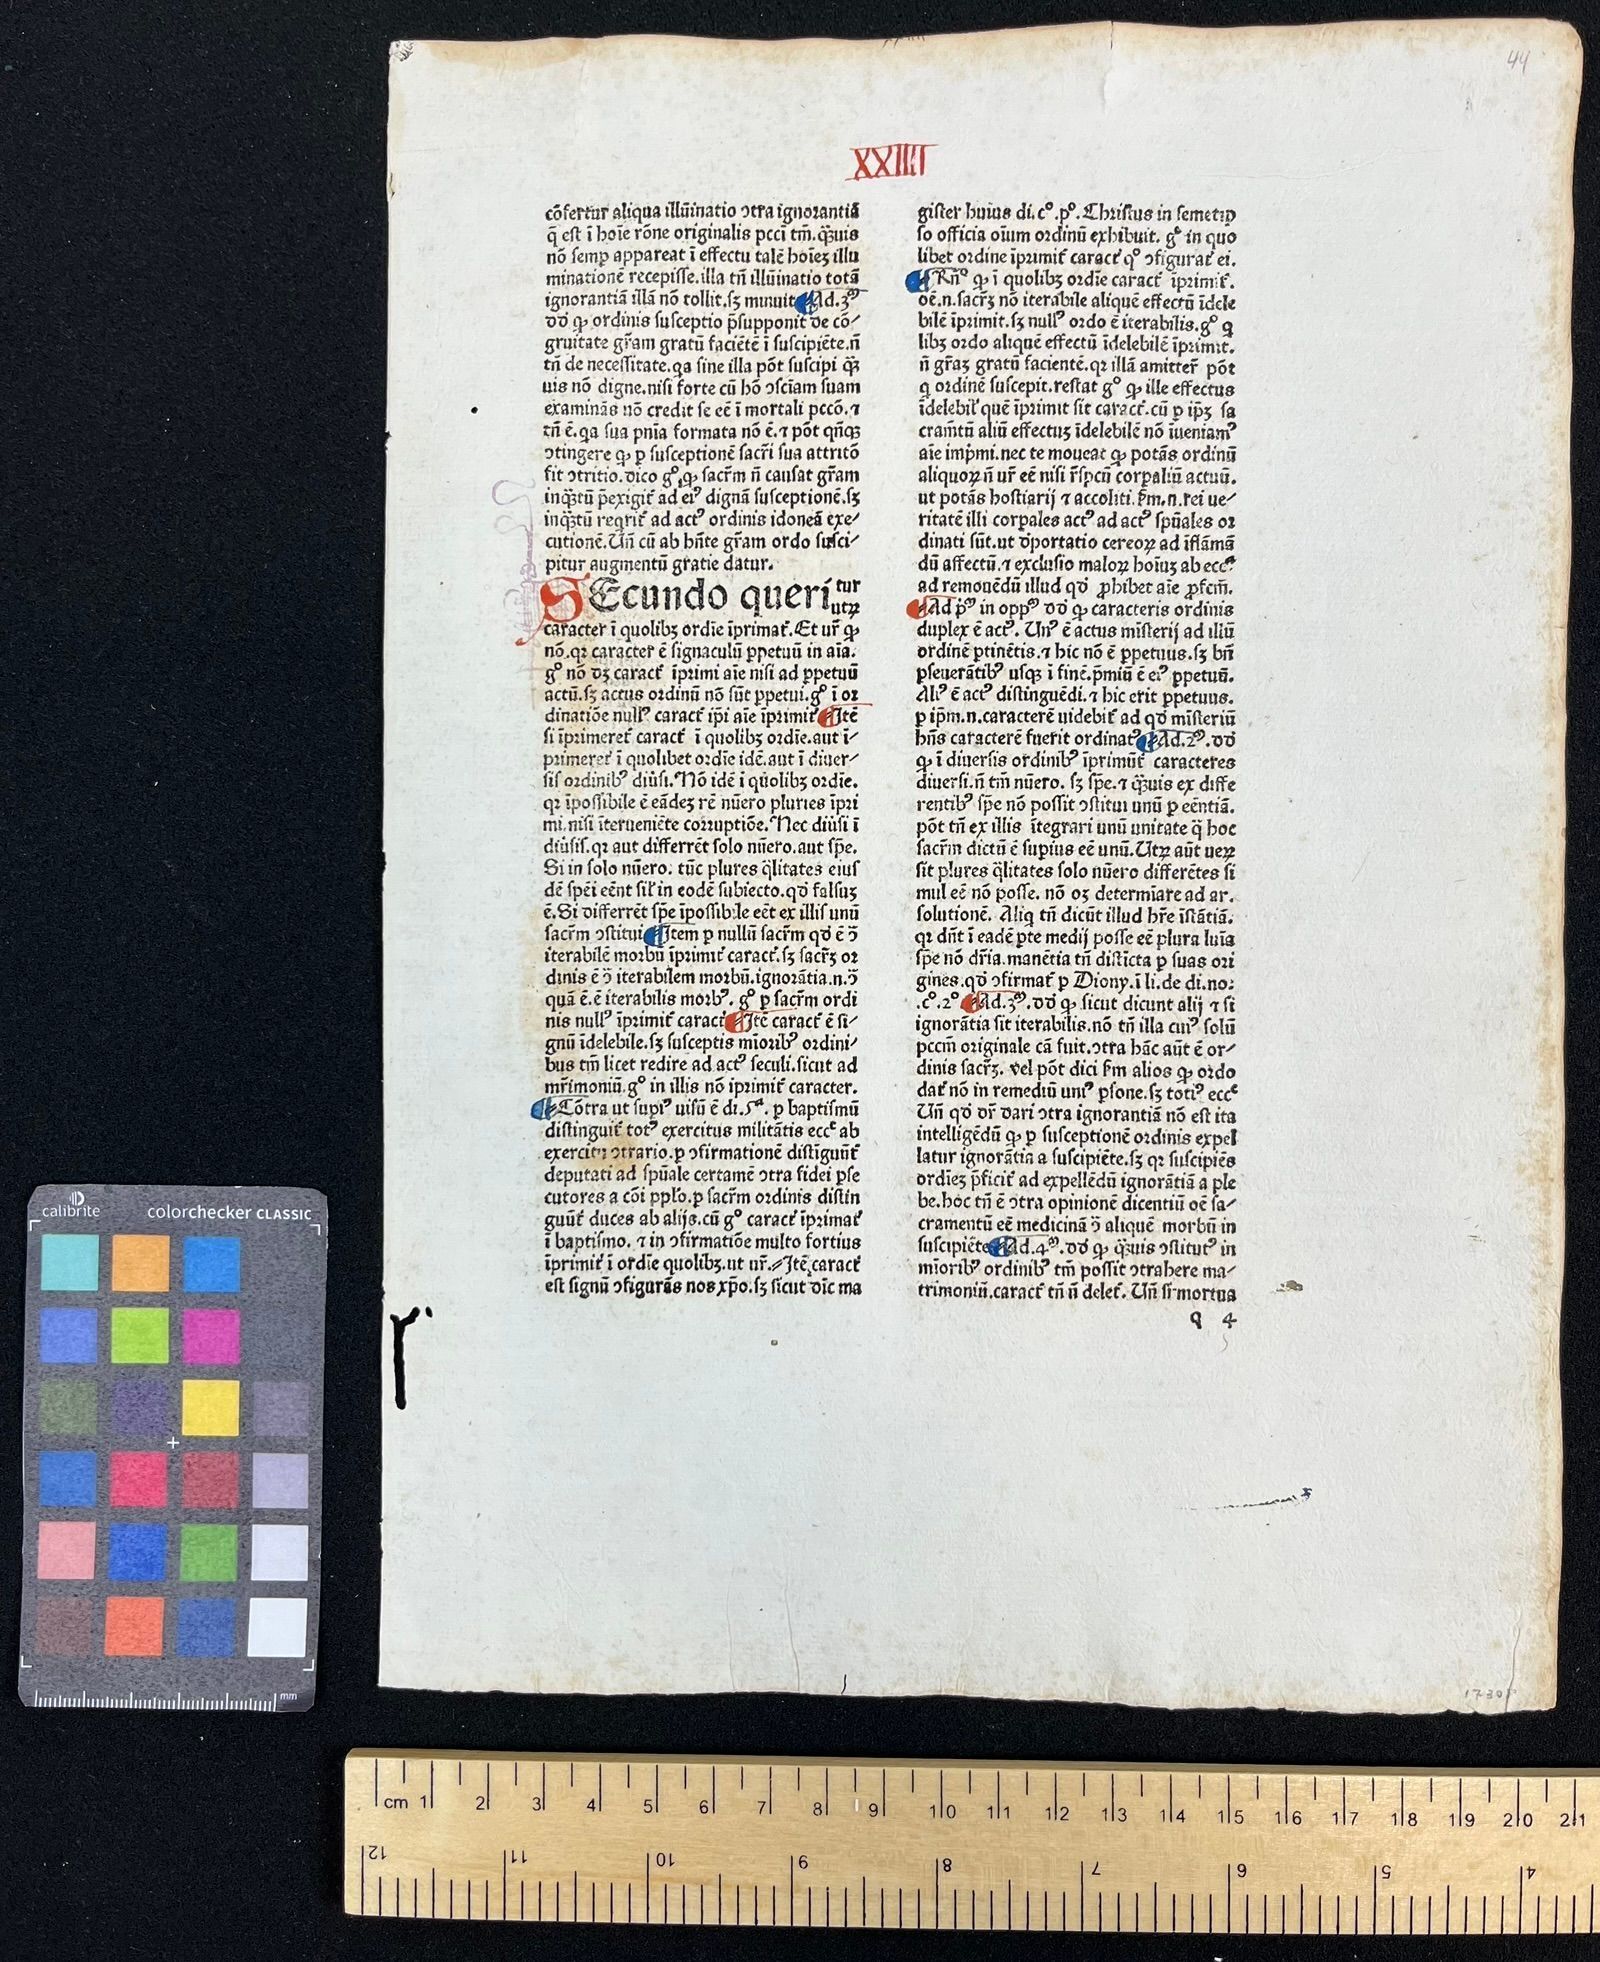 44
XXIIII
cōfertur aliqua illūinatio ɔtra ignorantiā
q̄ est ī hoīe rōne originalis pccī tm̄. q̄ȝuis
nō semꝑ appareat ī effectu talē hoīeȝ illu
minationē recepisse. illa tn̄ illūinatio totā
ignorantiā illā nō tollit. sȝ minuit Ad. 3ᵐ
dd̄ ꝙ ordinis susceptio p̄supponit de cō⸗
gruitate gr̄am gratū faciētē ī suscipiēte. n̄
tn̄ de necessitate. qa sine illa pōt suscipi q̄ȝ
uis nō digne. nisi forte cū hō ɔsc̄iam suam
examinās nō credit se eē ī mortali pccō. ⁊
tn̄ ē. qa sua pn̄ia formata nō ē. ⁊ pōt qn̄qȝ
ɔtingere ꝙ ꝑ susceptionē sacr̄i sua attritō
fit ɔtritio. dico gº. ꝙ sacr̄m n̄ causat gr̄am
inq̄ȝtū p̄exigit᷑ ad eiꝰ dignā susceptionē. sȝ
inq̄ȝtū reqrit᷑ ad actꝰ ordinis idoneā exe⸗
cutionē. Un̄ cū ab hn̄te gr̄am ordo susci⸗
pitur augmentū gratie datur.
SEcundo queritur
utꝝ
caracter ī quolibȝ ordīe īprimat᷑. Et ur̄ ꝙ
nō. qꝛ caracter ē signaculū ꝑpetuū in aīa.
gº nō dȝ caract᷑ īprimi aīe nisi ad ꝑpetuū
actū. sȝ actus ordinū nō sūt ꝑpetui. gº ī or
dinatiōe nullꝰ caract᷑ ip̄i aīe īprimit᷑ Itē
si īprimeret᷑ caract᷑ ī quolibȝ ordīe. aut ī⸗
primeret᷑ ī quolibet ordīe idē. aut ī diuer⸗
sis ordinibꝰ diūsi. Nō idē ī quolibȝ ordīe.
qꝛ īpossibile ē eādeȝ rē nūero pluries īpri
mi. nisi īterueniēte corruptiōe. Nec diūsi ī
diūsis. qꝛ aut differrēt solo nūero. aut spē.
Si in solo nūero. tūc plures q̄litates eius
dē spēi eēnt sil̄ in eodē subiecto. qd̄ falsuȝ
ē. Si differrēt spē īpossibile eēt ex illis unū
sacr̄m ɔstitui Item ꝑ nullū sacr̄m qd̄ ē ɔ̄
iterabilē morbū īprimit᷑ caract᷑. sȝ sacr̄ȝ or
dinis ē ɔ̄ iterabilem morbū. ignorātia. n. ɔ̄
quā ē. ē iterabilis morbꝰ. gº ꝑ sacr̄m ordi
nis nullꝰ īprimit᷑ caract᷑ Itē caract᷑ ē si⸗
gnū īdelebile. sȝ susceptis mīoribꝰ ordini⸗
bus tm̄ licet redire ad actꝰ seculi. sicut ad
mr̄imoniū. gº in illis nō īprimit᷑ caracter.
Cōtra ut supiꝰ uisū ē di. 5ᵃ. ꝑ baptismū
distinguit᷑ totꝰ exercitus militātis eccᵉ ab
exercitu ɔtrario. ꝑ ɔfirmationē distīgūnt᷑
deputati ad sp̄uale certamē ɔtra fidei ꝑse
cutores a cōi ppl̄o. ꝑ sacr̄m ordinis distin
guūt᷑ duces ab alijs. cū gº caract᷑ īprimat᷑
ī baptismo. ⁊ in ɔfirmatiōe multo fortius
īprimit᷑ ī ordīe quolibȝ. ut ur̄. Itē caract᷑
est signū ɔfigurās nos xp̄o. sȝ sicut dīc ma
gister huius di. cº. pº. Christus in semetip
so officia oīum ordinū exhibuit. gº in quo
libet ordine īprimit᷑ caract᷑ qº ɔfigurat᷑ ei.
Rn̄º ꝙ ī quolibȝ ordīe caract᷑ īprimit᷑.
oē. n. sacr̄ȝ nō iterabile aliquē effectū īdele
bilē īprimit. sȝ nullꝰ ordo ē iterabilis. gº q
libȝ ordo aliquē effectū īdelebilē īprimit.
n̄ gr̄aȝ gratū facientē. qꝛ illā amitter̄ pōt
q ordinē suscepit. restat gº ꝙ ille effectus
īdelebil᷑ quē īprimit sit caract᷑. cū ꝑ ip̄ȝ sa
cram̄tū aliū effectuȝ īdelebilē nō īueniamꝰ
aīe imp̄mi. nec te moueat ꝙ potās ordinū
aliquoꝝ n̄ ur̄ eē nisi r̄spcū corꝑaliū actuū.
ut potās hostiarij ⁊ accoliti. ẜm. n. rei ue⸗
ritatē illi corꝑales actꝰ ad actꝰ sp̄uales or
dinati sūt. ut dportatio cereoꝝ ad īflāmā
dū affectū. ⁊ exclusio maloꝝ hoīuȝ ab eccᵃ
ad remouēdū illud qd̄ ꝓhibet aīe ꝓfcm̄.
Ad pᵐ in oppᵐ dd̄ ꝙ caracteris ordinis
duplex ē actꝰ. Unꝰ ē actus mīsterij ad illū
ordinē ꝑtinētis. ⁊ hic nō ē ꝑpetuus. sȝ bn̄
ꝑseuerātibꝰ usqȝ ī finē. p̄miū ē eiꝰ ꝑpetuū.
Alꝰ ē actꝰ distinguēdi. ⁊ hic erit ꝑpetuus.
ꝑ ip̄m. n. caracterē uidebit᷑ ad qd̄ mīsteriū
hn̄s caracterē fuerit ordinatꝰ Ad. 2ᵐ. dd̄
ꝙ ī diuersis ordinibꝰ īprimūt᷑ caracteres
diuersi. n̄ tm̄ nūero. sȝ spē. ⁊ q̄ȝuis ex diffe
rentibꝰ spē nō possit ɔstitui unū ꝑ eēntiā.
pōt tn̄ ex illis ītegrari unū unitate q̄ hoc
sacr̄m dictū ē supius eē unū. Utꝝ aūt ueꝝ
sit plures q̄litates solo nūero differētes si
mul eē nō posse. nō oȝ determīare ad ar.
solutionē. Aliq tn̄ dicūt illud hr̄e īstātiā.
qꝛ dn̄t ī eadē ꝑte medij posse eē plura luīa
spē nō dr̄ia. manētia tn̄ distīcta ꝑ suas ori
gines. qd̄ ɔfirmat᷑ ꝑ Diony. ī li. de di. no:
.cº. 2º Ad. 3ᵐ. dd̄ ꝙ sicut dicunt alij ⁊ si
ignorātia sit iterabilis. nō tn̄ illa cuiꝰ solū
pccm̄ originale cā fuit. ɔtra hāc aūt ē or⸗
dinis sacr̄ȝ. vel pōt dici ẜm alios ꝙ ordo
dat᷑ nō in remediū uniꝰ ꝑsone. sȝ totiꝰ eccᵉ
Un̄ qd̄ dr̄ dari ɔtra ignorantiā nō est ita
intelligēdū ꝙ ꝑ susceptionē ordinis expel
latur ignorātia a suscipiēte. sȝ qꝛ suscipiēs
ordīeȝ p̄ficit᷑ ad expellēdū ignorātiā a ple
be. hoc tn̄ ē ɔtra opinionē dicentiū oē sa⸗
cramentū eē medicinā ɔ̄ aliquē morbū in
suscipiēte Ad. 4ᵐ. dd̄ ꝙ q̄ȝuis ɔstitutꝰ in
mīoribꝰ ordinibꝰ tm̄ possit ɔtrahere ma⸗
trimoniū. caract᷑ tn̄ n̄ delet᷑. Un̄ si mortua
q 4
calibrite
colorchecker CLASSIC
mm
cm 1 2 3 4 5 6 7 8 9 10 11 12 13 14 15 16 17 18 19 20 21
12 11 10 9 8 7 6 5 4